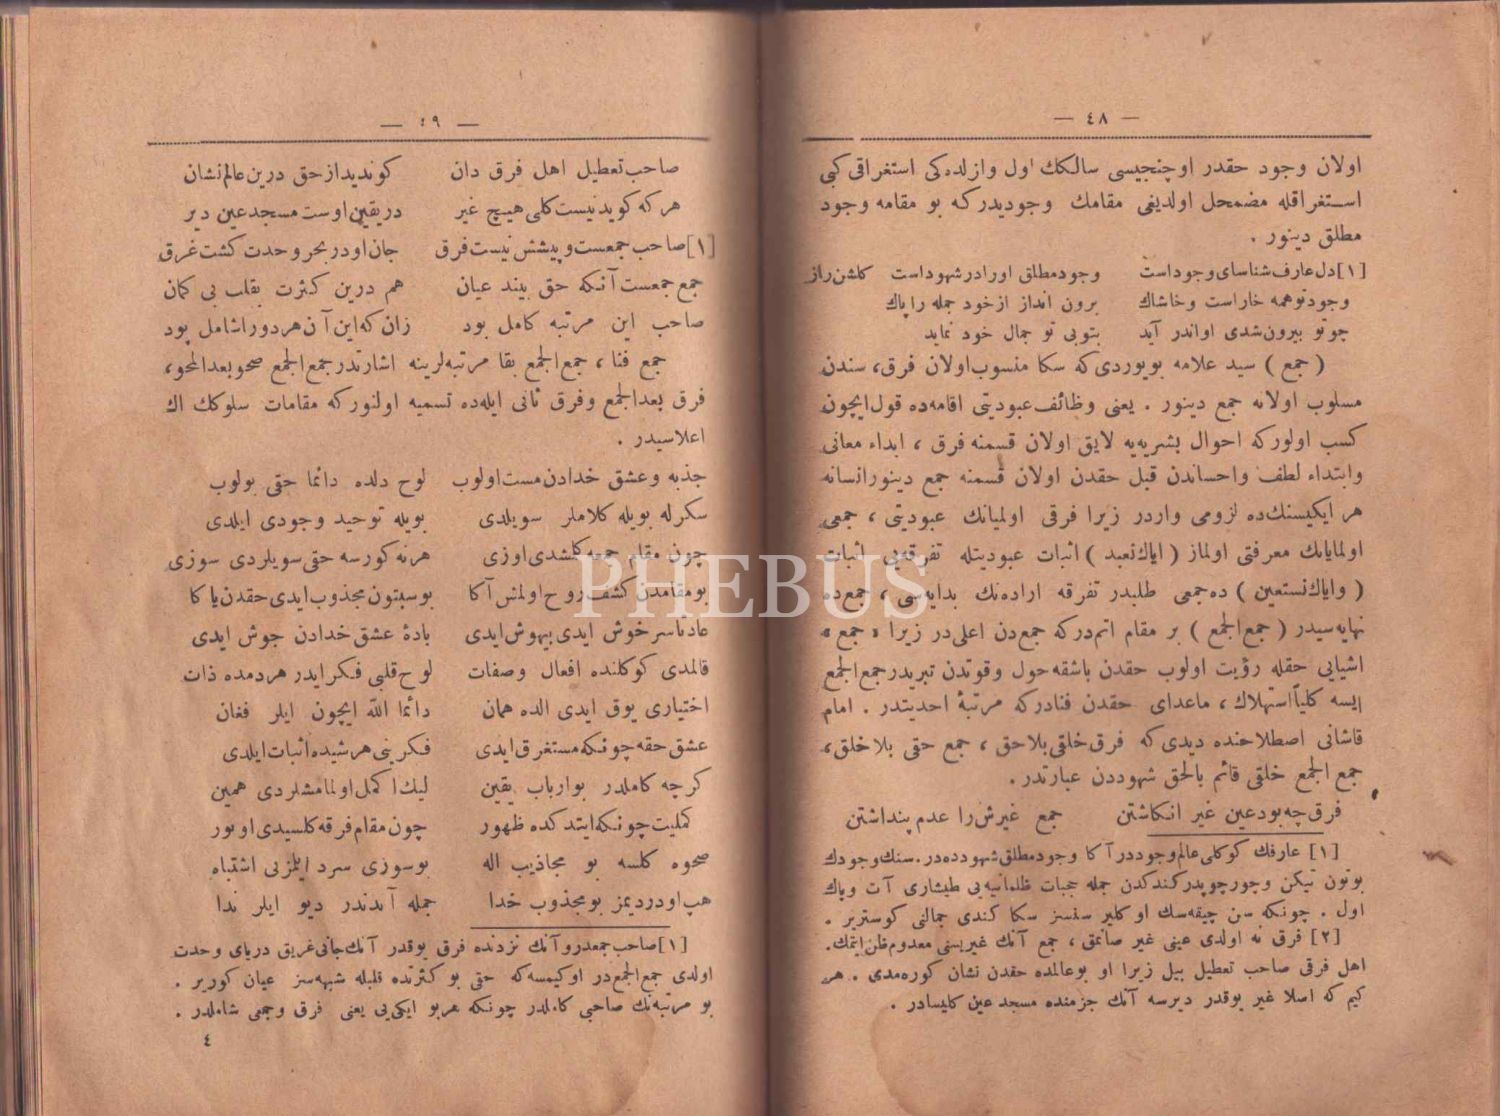 — ٤٨ —
اولان وجود حقدر اوچنجیسی سالكك اول وازلده كی استغراقی كبی
استغراقله مضمحل اولدیغی مقامك وجودیدركه بو مقامه وجود
مطلق دینور .
[١] دل عارف شناسای وجود است وجود مطلق اورا در شهود است كلشن راز
وجود تو همه خار است وخاشاك برون انداز از خود جمله را پاك
چو تو بیرون شدی او اندر آید بتو بی تو جمال خود نماید
( جمع ) سید علامه بویوردی كه سكا منسوب اولان فرق، سندن
مسلوب اولانه جمع دینور . یعنی وظائف عبودیتی اقامه ده قول ایچون
كسب اولوركه احوال بشریه یه لایق اولان قسمنه فرق ، ابداء معانی
وابتداء لطف واحساندن قبل حقدن اولان قسمنه جمع دینور انسانه
هر ایكیسنك ده لزومی واردر زیرا فرقی اولمیانك عبودیتی ، جمعی
اولمایانك معرفتی اولماز ( ایاك نعبد ) اثبات عبودیتله تفرقه یی اثبات
( وایاك نستعین ) ده جمعی طلبدر تفرقه اراده نك بدایه سی ، جمع ده
نهایه سیدر ( جمع الجمع ) بر مقام اتم دركه جمع دن اعلی در زیرا « جمع »
اشیایی حقله رؤیت اولوب حقدن باشقه حول وقوتدن تبریدر جمع الجمع
ایسه كلیاً استهلاك ، ماعدای حقدن فنادركه مرتبهٔ احدیتدر . امام
قاشانی اصطلاحنده دیدی كه فرق خلقی بلا حق ، جمع حقی بلا خلق ،
جمع الجمع خلقی قائم بالحق شهوددن عبارتدر .
فرق چه بود عین غیر انكاشتن جمع غیرش را عدم پنداشتن
[١] عارفك كوكلی عالم وجوددر آكا وجود مطلق شهودده در . سنك وجودك
بوتون تیكن وچورچوپدر كندكدن جمله حجبات ظلمانیه یی طیشاری آت وپاك
اول . چونكه سن چیقه سك او كلیر سنسز سكا كندی جمالنی كوستریر .
[٢] فرق نه اولدی عینی غیر صانمق ، جمع آنك غیریسنی معدوم ظن ایتمك .
اهل فرقی صاحب تعطیل بیل زیرا او بو عالمده حقدن نشان كوره مدی . هر
كیم كه اصلا غیر یوقدر دیرسه آنك جزمنده مسجد عین كلیسادر .
— ٤٩ —
صاحب تعطیل اهل فرق دان كو ندید از حق درین عالم نشان
هر كه كوید نیست كلی هیچ غیر در یقین اوست مسجد عین دیر
[١] صاحب جمعست و پیشش نیست فرق جان او در بحر وحدت كشت غرق
جمع جمعست آنكه حق بیند عیان هم درین كثرت بقلب بی كمان
صاحب این مرتبه كامل بود زان كه این آن هر دو را شامل بود
جمع فنا ، جمع الجمع بقا مرتبه لرینه اشارتدر جمع الجمع صحو بعد المحو ،
فرق بعد الجمع وفرق ثانی ایله ده تسمیه اولنوركه مقامات سلوكك اك
اعلاسیدر .
جذبه وعشق خدادن مست اولوب لوح دلده دائما حقی بولوب
سكرله بویله كلاملر سویلدی بویله توحید وجودی ایلدی
چون مقام جمعه كلشدی اوزی هر نه كورسه حقی سویلردی سوزی
بو مقامدن كشف روح اولمش آكا بوسبتون مجذوب ایدی حقدن یاكا
عادتا سرخوش ایدی بیهوش ایدی بادهٔ عشق خدادن جوش ایدی
قالمدی كوكلنده افعال وصفات لوح قلبی فكر ایدر هر دمده ذات
اختیاری یوق ایدی الده همان دائما الله ایچون ایلر فغان
عشق حقه چونكه مستغرق ایدی فكرینی هر شیده اثبات ایلدی
كرچه كاملدر بو ارباب یقین لیك اكمل اولمامشلردی همین
كملیت چونكه ایتدكده ظهور چون مقام فرقه كلسیدی اونور
صحوه كلسه بو مجاذیب اله بو سوزی سرد ایلزبی اشتباه
هپ اودر دیمز بو مجذوب خدا جمله آندندر دیو ایلر ندا
[١] صاحب جمعدر و آنك نزدنده فرق یوقدر آنك جانی غریق دریای وحدت
اولدی جمع الجمع در او كیمسه كه حقی بو كثرتده قلبله شبهه سز عیان كوریر .
بو مرتبه نك صاحبی كاملدر چونكه هر بو ایكی یی یعنی فرق وجمعی شاملدر .
٤
PHEBUS